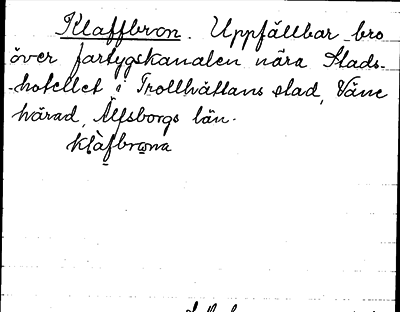 Klaffbron. Uppfällbar bro
över fartygskanalen nära Stads-
-hotellet i Trollhättans stad, Väne
härad, Älfsborgs län.
klàfbrơna